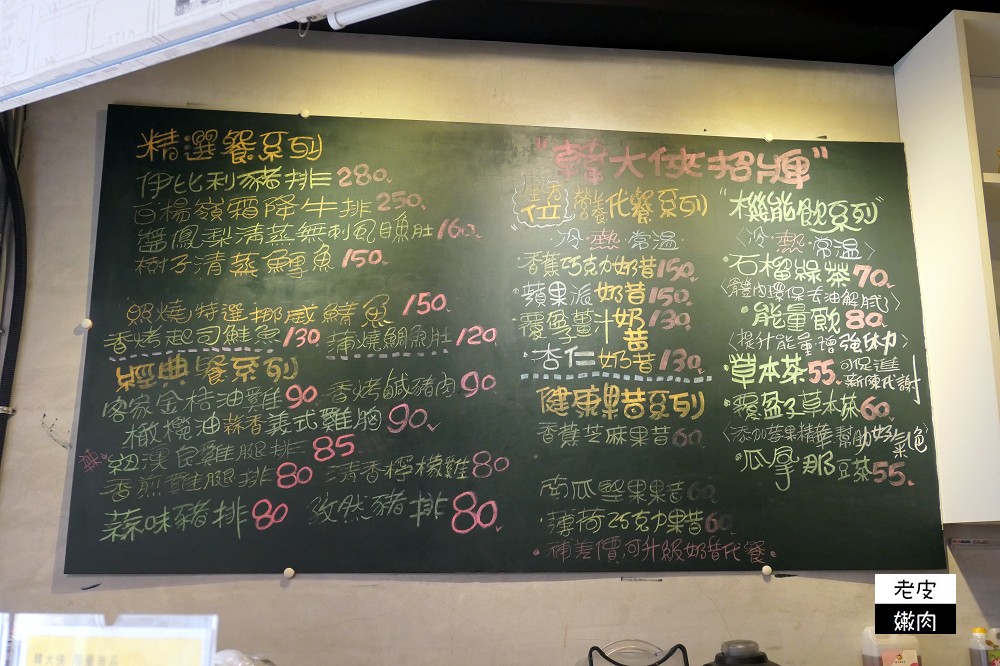 精選餐系列
伊比利豬排280
白楊嶺霜降牛排250
醬鳳梨清蒸無刺虱目魚肚160
樹子清蒸鱈魚150
照燒特選挪威鯖魚150
香烤起司鮭魚130 蒲燒鯛魚肚120
經典餐系列
客家金桔油雞90 香烤鹹豬肉90
橄欖油蒜香義式雞胸90
紐澳良雞腿排85
香煎雞腿排80 清香檸檬雞80
蒜味豬排80 孜然豬排80
"韓大俠招牌"
全方位營養代餐系列
冷·熱·常溫
香蕉巧克力奶昔150
蘋果派奶昔150
覆盆薑汁奶昔130
杏仁奶昔130
健康果昔系列
香蕉芝麻果昔60
南瓜堅果果昔60
薄荷巧克力果昔60
補差價可升級奶昔代餐
"機能飲系列"
〈冷·熱·常溫〉
石榴綠茶70
〈體內環保去油解膩〉
能量飲80
〈提升能量增強体力〉
草本茶55 可促進新陳代謝
覆盆子草本茶60
〈添加莓果精華幫助好氣色〉
瓜拿那豆茶55
老皮
嫩肉